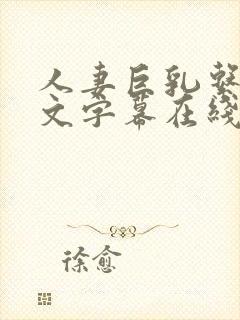 人妻巨乳繁
文字幕在线
徐愈